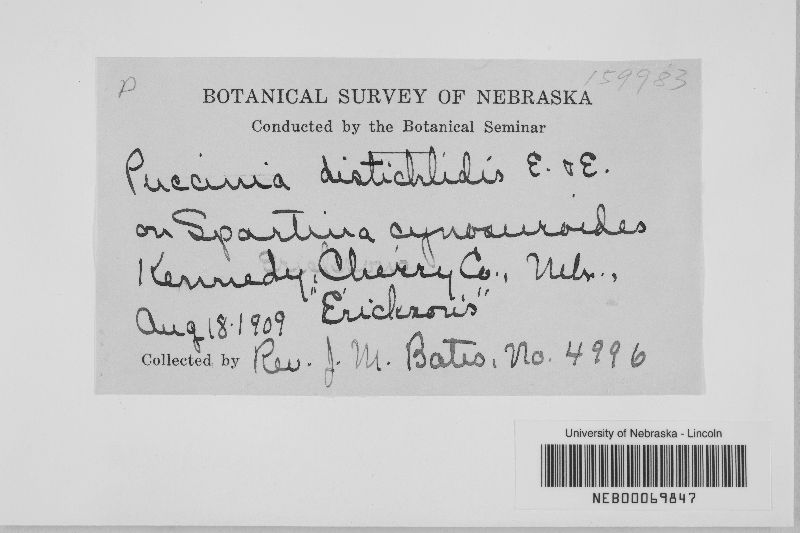 D
159983
BOTANICAL SURVEY OF NEBRASKA
Conducted by the Botanical Seminar
Puccinia distichlidis E. & E.
on Spartina cynosuroides
Kennedy, Cherry Co., Nebr.,
Aug 18-1909 "Erickson's"
Collected by Rev. J. M. Bates, No. 4996
University of Nebraska - Lincoln
NEB00069847